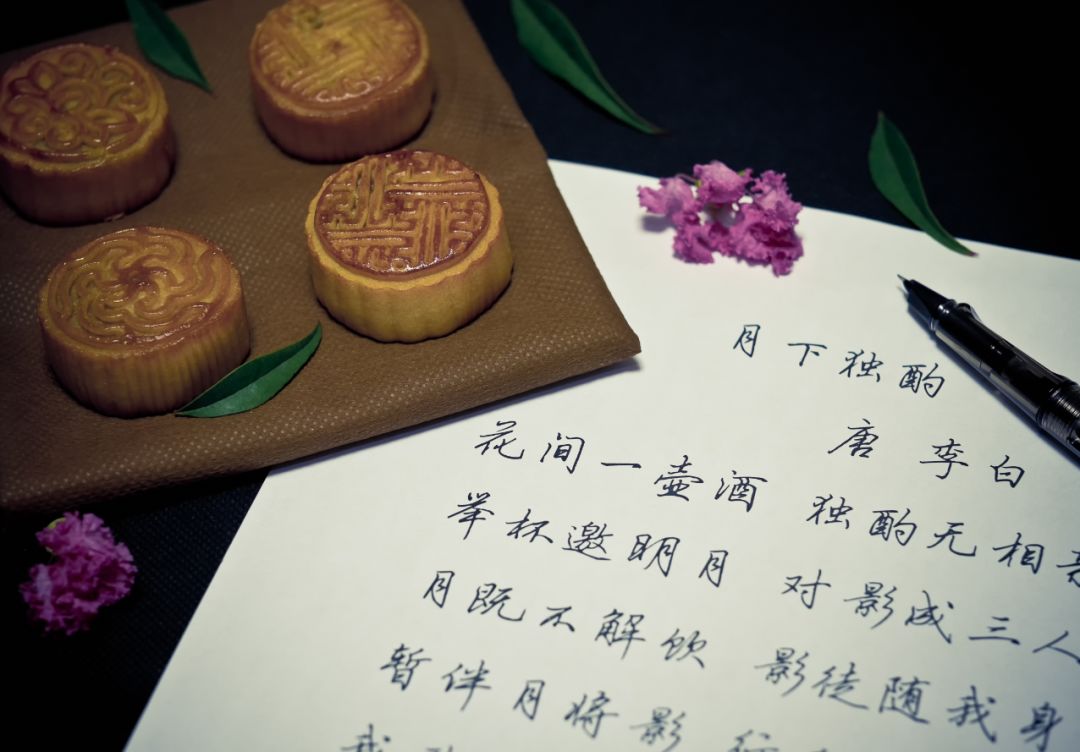 月下独酌
唐 李白
花间一壶酒 独酌无相亲
举杯邀明月 对影成三人
月既不解饮 影徒随我身
暂伴月将影 行
我